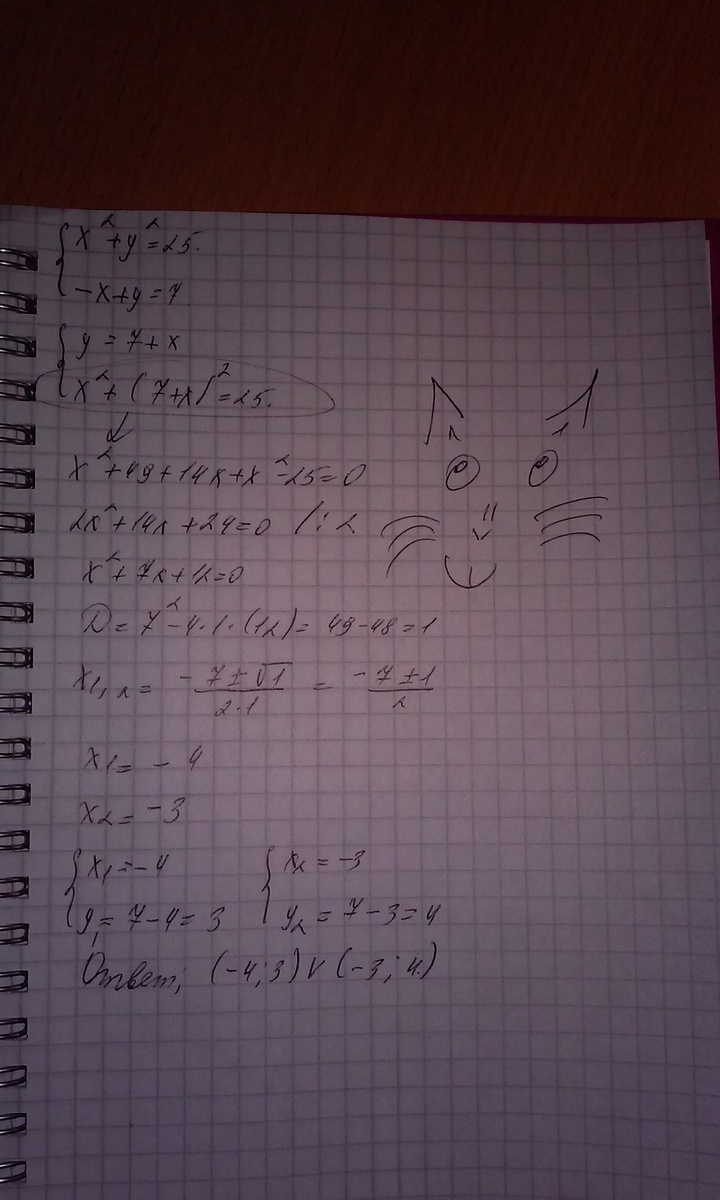 x²+y²=25.
-x+y=7
y=7+x
x²+(7+x)²=25.
x²+49+14x+x²-25=0
2x²+14x+24=0 /:2
x²+7x+12=0
D=7²-4·1·(12)=49-48=1
x1,2= -7±√1/2·1 = -7±1/2
x1=-4
x2=-3
{x1=-4 {x2=-3
y1=7-4=3 y2=7-3=4
Ответ; (-4;3)∨(-3;4)